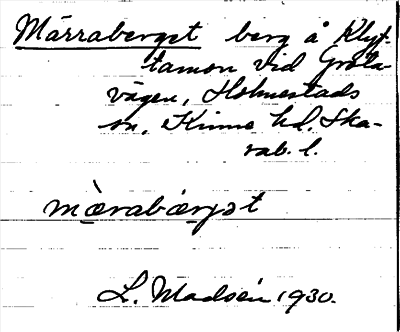 Märraberget berg å Klyf-
tamon vid Gröla-
vägen, Holmestads
sn, Kinne hd, Ska-
rab. l.
mæ̀rabærɡət
L. Madsén 1930.